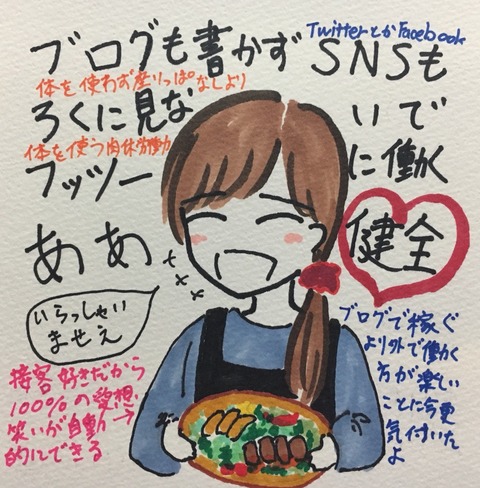 ブログも書かず
TwitterとかFacebook
SNSも
体を使わず座りっぱなしより
ろくに見ないで
体を使う肉体労働
フッツーに働く
ああ
健全
いらっしゃい
ませえ
接客好きだから
100%の愛想
笑いが自動→
的にできる
ブログで稼ぐ
より外で働く
方が楽しい
ことに今更
気付いた
よ